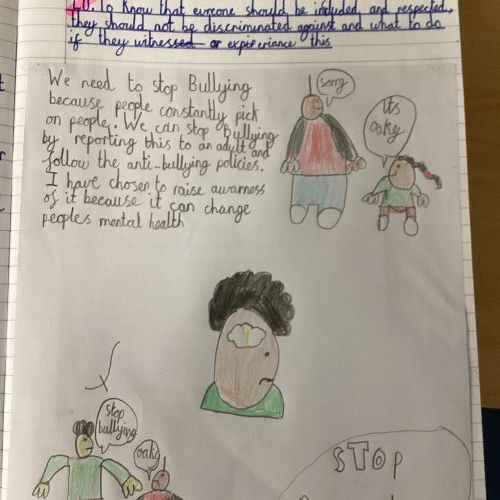 L.O: To know that everyone should be included and respected,
they should not be discriminated against and what to do
if they witnessed or experiance this
We need to stop Bullying
because people constantly pick
on people. We can stop bullying
by reporting this to an adult and
follow the anti-bullying policies.
I have chosen to raise awarness
of it because it can change
peoples mental health
sorry
Its
oaky
stop
bullying
oaky
STOP